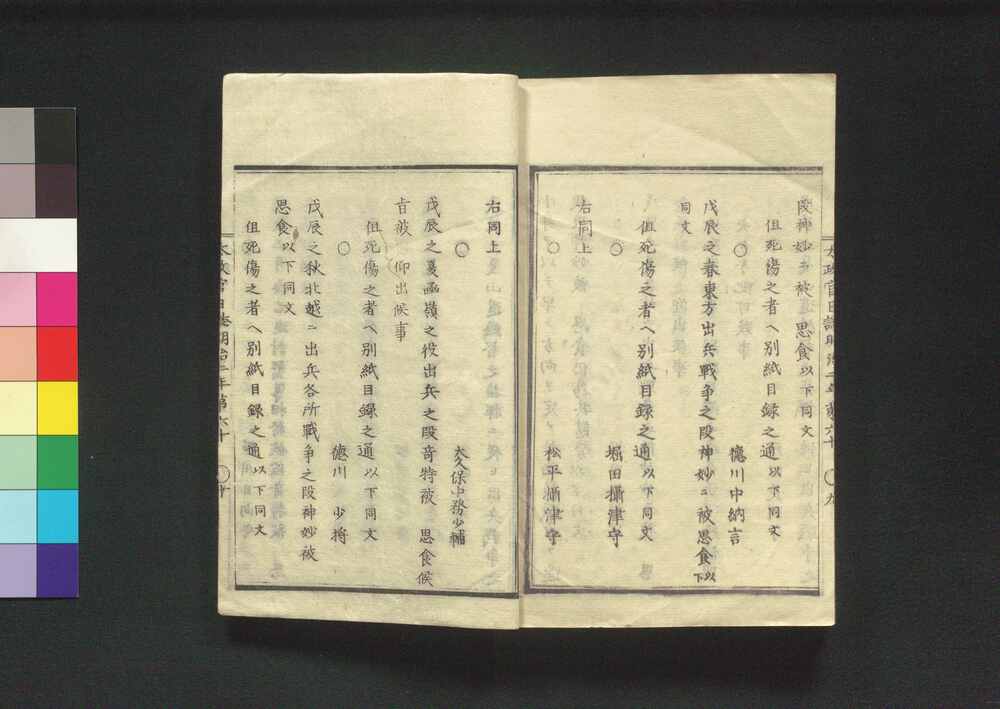 段神妙ニ被 思食以下同文
但死傷之者ヘ別紙目録之通以下同文
○ 徳川中納言
戊辰之春東方出兵戰争之段神妙ニ被思食以下
同文
但死傷之者ヘ別紙目録之通以下同文
○ 堀田攝津守
右同上
○ 松平攝津守
太政官日誌明治二年第六十 九
右同上
○ 大久保中務少輔
戊辰之夏函嶺之役出兵之段奇特被 思食候
旨被 仰出候事
但死傷之者ヘ別紙目録之通以下同文
○ 徳川 少将
戊辰之秋北越ニ出兵各所戰争之段神妙被
思食以下同文
但死傷之者ヘ別紙目録之通以下同文
太政官日誌明治二年第六十 十